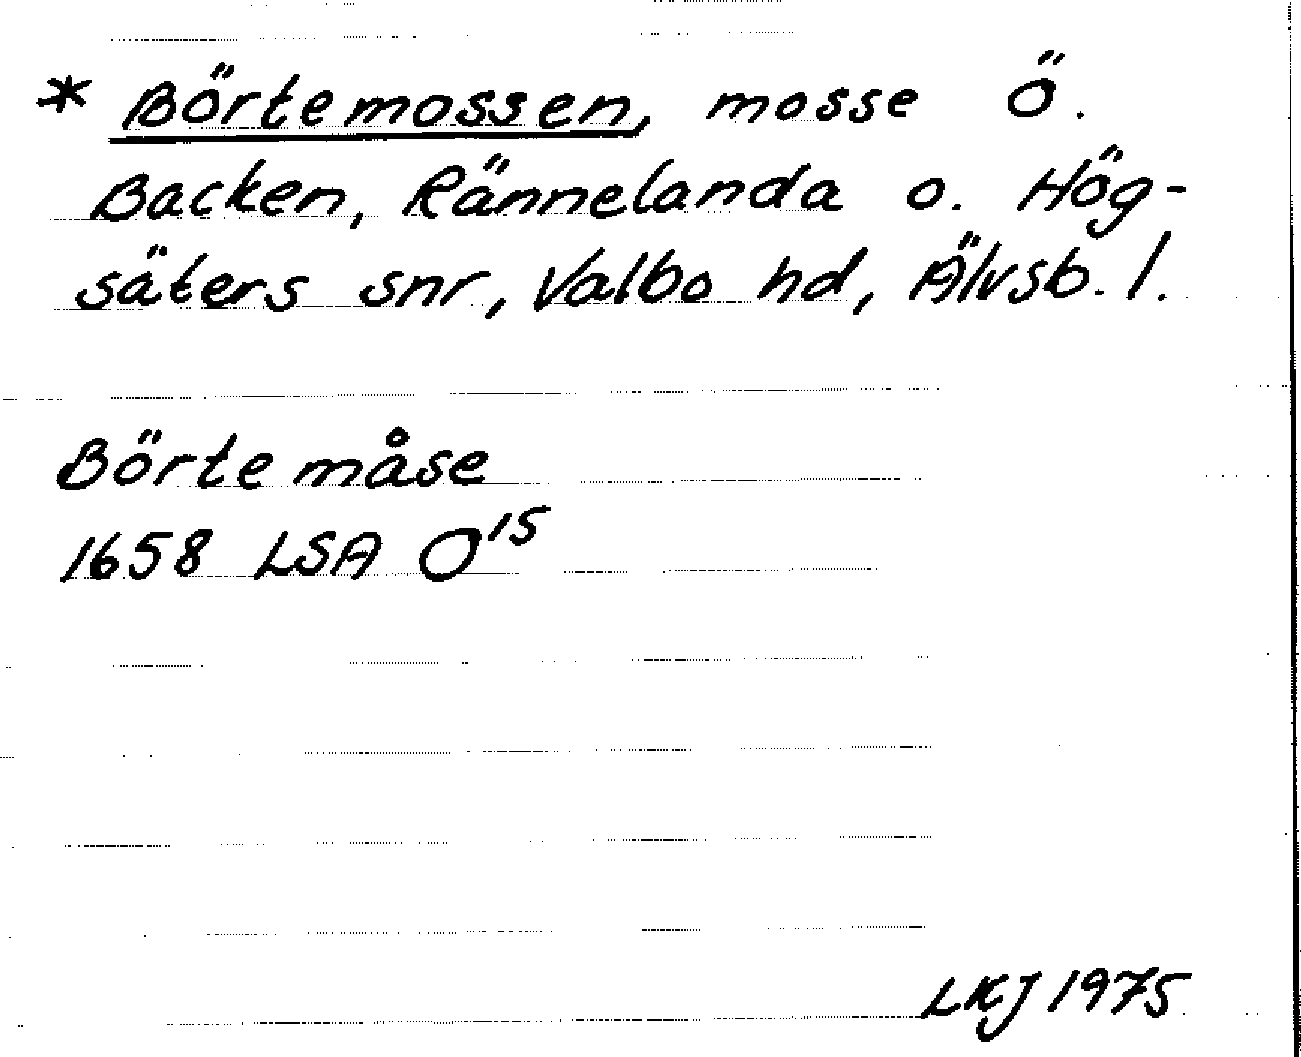 * Börtemossen, mosse Ö.
Backen, Rännelanda o. Hög-
säters snr, Valbo hd, Älvsb. l.
Börte måse
1658 LSA O15
LKJ 1975